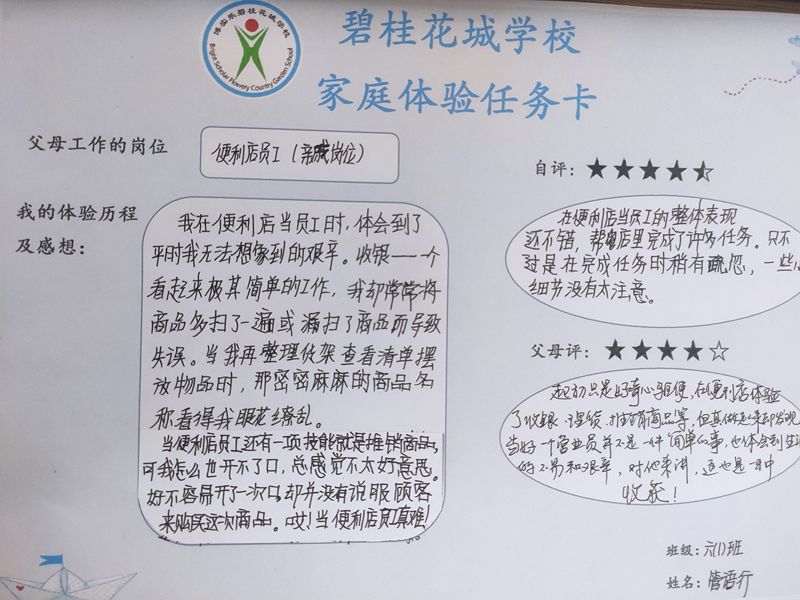 博实乐碧桂花城学校
Bright Scholar Flowery Country Garden School
碧桂花城学校
家庭体验任务卡
父母工作的岗位
便利店员工（亲戚岗位）
我的体验历程
及感想：
我在便利店当员工时，体会到了
平时我无法想象到的艰辛。收银——一个
看起来极其简单的工作，我却常常将
商品多扫了一遍或漏扫了商品而导致
失误。当我再整理货架查看清单摆
放物品时，那密密麻麻的商品名
称看得我眼花缭乱。
当便利店员工还有一项技能就是推销商品，
可我怎么也开不了口，总感觉不太好意思。
好不容易开了一次口，却并没有说服顾客
来购买这次商品。哎！当便利店员工真难！
自评：
在便利店当员工的整体表现
还不错，帮店里完成了许多任务。只不
过是在完成任务时稍有疏忽，一些
细节没有太注意。
父母评：
起初只是好奇心驱使，在便利店体验
了收银、理货、推销商品等，但真做起来却发现
当好一个营业员并不是一件简单的事，也体会到生活
的不易和艰辛，对他来讲，这也是一种
收获！
班级：六(1)班
姓名：